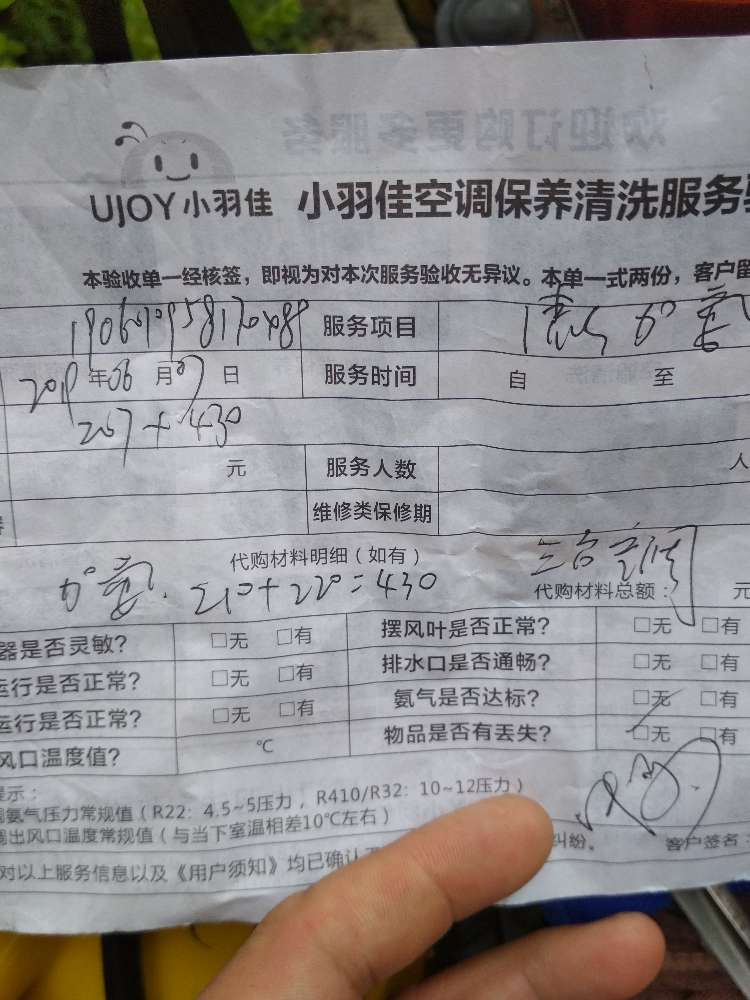 欢迎订购更多服务
UJOY小羽佳 小羽佳空调保养清洗服务
本验收单一经核签，即视为对本次服务验收无异议。本单一式两份，客户留
服务项目 清洗加氟
2019年06月07日 服务时间 自 至
207+430
元 服务人数 人
维修类保修期
代购材料明细（如有）
加氟. 210+220=430 三台空调
代购材料总额： 元
器是否灵敏？ □无 □有 摆风叶是否正常？ □无 □有
运行是否正常？ □无 □有 排水口是否通畅？ □无 □有
运行是否正常？ □无 □有 氨气是否达标？ □无 □有
风口温度值？ ℃ 物品是否有丢失？ □无 □有
示：
氨气压力常规值（R22：4.5~5压力，R410/R32：10~12压力）
出风口温度常规值（与当下室温相差10℃左右）
对以上服务信息以及《用户须知》均已确认 纠纷。 客户签名：